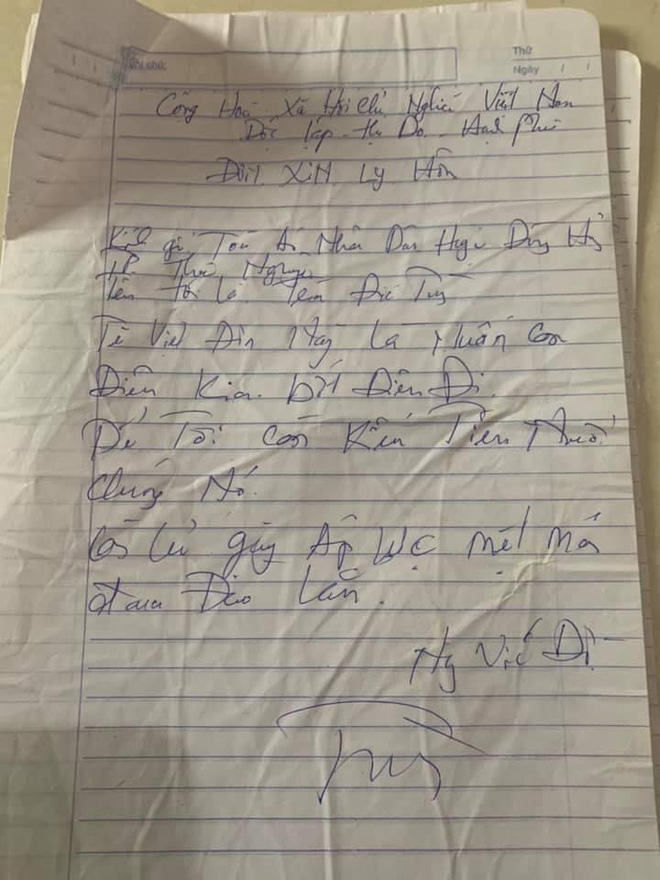 Ghi chú:
Thứ
Ngày / /
Cộng Hoà Xã Hội Chủ Nghĩa Việt Nam
Độc lập - Tự Do - Hạnh Phúc
Đơn XiN Ly Hôn
Kính gửi Toà Án Nhân Dân Huyện Đồng Hỷ
TP Thái Nguyên
Tên tôi là Đức
Tôi Viết Đơn Này là Muốn Con
Điên Kia bớt Điên Đi.
Để Tôi còn Kiếm Tiền Nuôi
chúng Nó.
Còn cứ gây Áp Lực mệt Mỏi
Đau Đầu Lắm.
Ng Viết Đơn